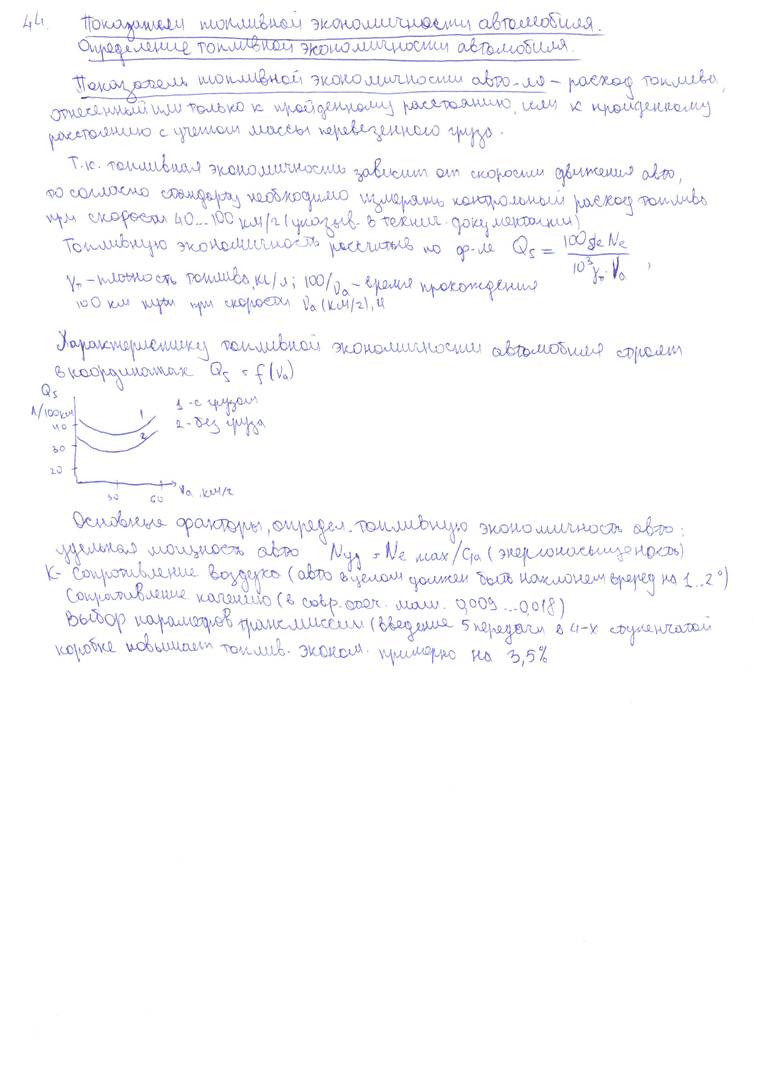 44. Показатели топливной экономичности автомобиля.
Определение топливной экономичности автомобиля.
Показатель топливной экономичности авто-ля – расход топлива,
отнесенный или только к пройденному расстоянию, или к пройденному
расстоянию с учетом массы перевезенного груза.
Т.к. топливная экономичность зависит от скорости движения авто,
то согласно стандарту необходимо измерять контрольный расход топлива
при скорости 40...100 км/ч (указыв. в технич. документации)
Топливную экономичность рассчитыв по ф-ле Qs = 100 ge Ne / 10³ γт · Va ,
γт – плотность топлива, кг/л; 100/Va – время прохождения
100 км пути при скорости Va (км/ч), ч
Характеристику топливной экономичности автомобиля строят
в координатах Qs = f(Va)
Qs
л/100км
40
30
20
1
2
1 - с грузом
2 - без груза
30 60 Va, км/ч
Основные факторы, определ. топливную экономичность авто:
удельная мощность авто Nуд = Ne max/Ga (энергонасыщеность)
K - Сопротивление воздуха (авто в целом должен быть наклонен вперед на 1...2°)
Сопротивление качению (в совр. отеч. маш. 0,009...0,018)
Выбор параметров трансмиссии (введение 5 передачи в 4-х ступенчатой
коробке повышает топлив. эконом. примерно на 3,5%